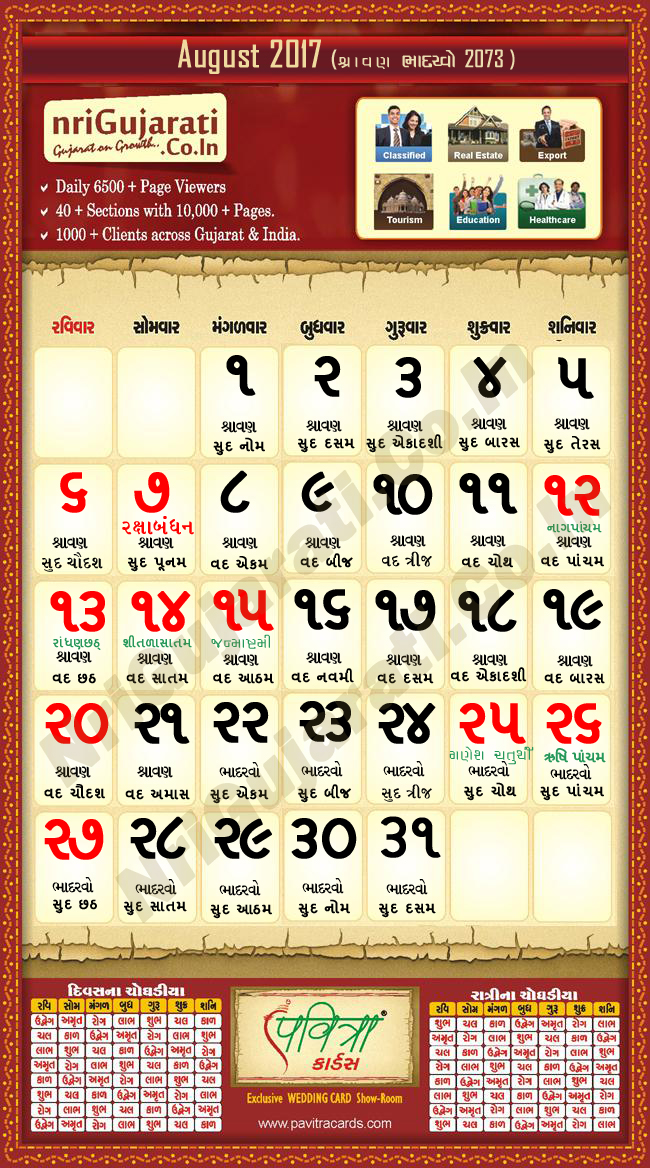 August 2017 (શ્રાવણ ભાદરવો 2073 )
nriGujarati
Gujarat on Growth..
.Co.In
Daily 6500 + Page Viewers
40 + Sections with 10,000 + Pages.
1000 + Clients across Gujarat & India.
Classified Real Estate Export
Tourism Education Healthcare
રવિવાર સોમવાર મંગળવાર બુધવાર ગુરૂવાર શુક્રવાર શનિવાર
૧ ૨ ૩ ૪ ૫
શ્રાવણ શ્રાવણ શ્રાવણ શ્રાવણ શ્રાવણ
સુદ નોમ સુદ દસમ સુદ એકાદશી સુદ બારસ સુદ તેરસ
૬ ૭ ૮ ૯ ૧૦ ૧૧ ૧૨
રક્ષાબંધન નાગપાંચમ
શ્રાવણ શ્રાવણ શ્રાવણ શ્રાવણ શ્રાવણ શ્રાવણ શ્રાવણ
સુદ ચૌદશ સુદ પૂનમ વદ એકમ વદ બીજ વદ ત્રીજ વદ ચોથ વદ પાંચમ
૧૩ ૧૪ ૧૫ ૧૬ ૧૭ ૧૮ ૧૯
રાંધણછઠ્ શીતળાસાતમ જન્માષ્ટમી
શ્રાવણ શ્રાવણ શ્રાવણ શ્રાવણ શ્રાવણ શ્રાવણ શ્રાવણ
વદ છઠ વદ સાતમ વદ આઠમ વદ નવમી વદ દસમ વદ એકાદશી વદ બારસ
૨૦ ૨૧ ૨૨ ૨૩ ૨૪ ૨૫ ૨૬
ગણેશ ચતુર્થી ઋષિ પાંચમ
શ્રાવણ શ્રાવણ ભાદરવો ભાદરવો ભાદરવો ભાદરવો ભાદરવો
વદ ચૌદશ વદ અમાસ સુદ એકમ સુદ બીજ સુદ ત્રીજ સુદ ચોથ સુદ પાંચમ
૨૭ ૨૮ ૨૯ ૩૦ ૩૧
ભાદરવો ભાદરવો ભાદરવો ભાદરવો ભાદરવો
સુદ છઠ સુદ સાતમ સુદ આઠમ સુદ નોમ સુદ દસમ
Nrigujarati.co.in
Nrigujarati.co.in
દિવસના ચોઘડીયા
રવિ સોમ મંગળ બુધ ગુરૂ શુક્ર શનિ
ઉદ્વેગ અમૃત રોગ લાભ શુભ ચલ કાળ
ચલ કાળ ઉદ્વેગ અમૃત રોગ લાભ શુભ
લાભ શુભ ચલ કાળ ઉદ્વેગ અમૃત રોગ
અમૃત રોગ લાભ શુભ ચલ કાળ ઉદ્વેગ
કાળ ઉદ્વેગ અમૃત રોગ લાભ શુભ ચલ
શુભ ચલ કાળ ઉદ્વેગ અમૃત રોગ લાભ
રોગ લાભ શુભ ચલ કાળ ઉદ્વેગ અમૃત
ઉદ્વેગ અમૃત રોગ લાભ શુભ ચલ કાળ
પવિત્રા®
કાર્ડસ
Exclusive WEDDING CARD Show-Room
www.pavitracards.com
રાત્રીના ચોઘડીયા
રવિ સોમ મંગળ બુધ ગુરૂ શુક્ર શનિ
શુભ ચલ કાળ ઉદ્વેગ અમૃત રોગ લાભ
અમૃત રોગ લાભ શુભ ચલ કાળ ઉદ્વેગ
ચલ કાળ ઉદ્વેગ અમૃત રોગ લાભ શુભ
રોગ લાભ શુભ ચલ કાળ ઉદ્વેગ અમૃત
કાળ ઉદ્વેગ અમૃત રોગ લાભ શુભ ચલ
લાભ શુભ ચલ કાળ ઉદ્વેગ અમૃત રોગ
ઉદ્વેગ અમૃત રોગ લાભ શુભ ચલ કાળ
શુભ ચલ કાળ ઉદ્વેગ અમૃત રોગ લાભ